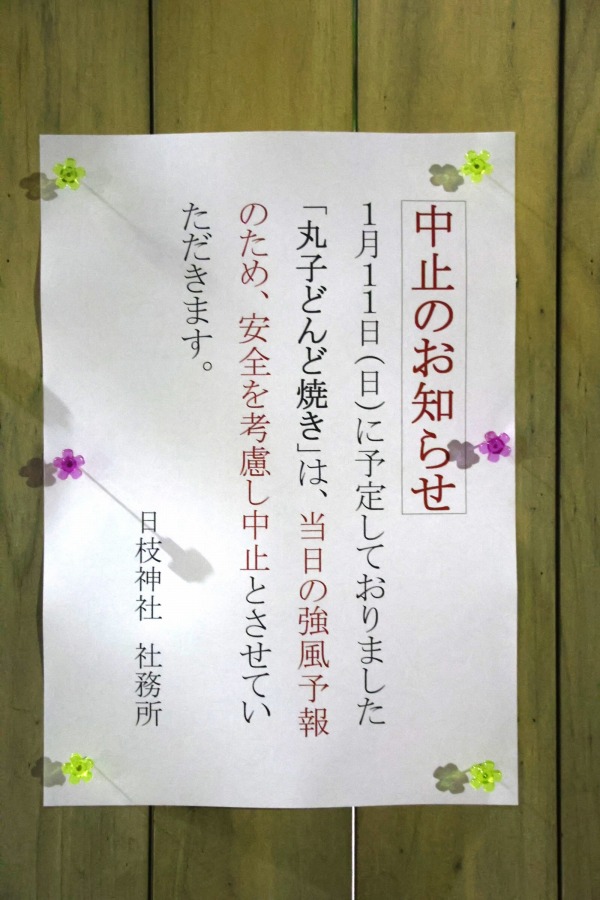 中止のお知らせ
１月１１日（日）に予定しておりました
「丸子どんど焼き」は、当日の強風予報
のため、安全を考慮し中止とさせてい
ただきます。
日枝神社　社務所